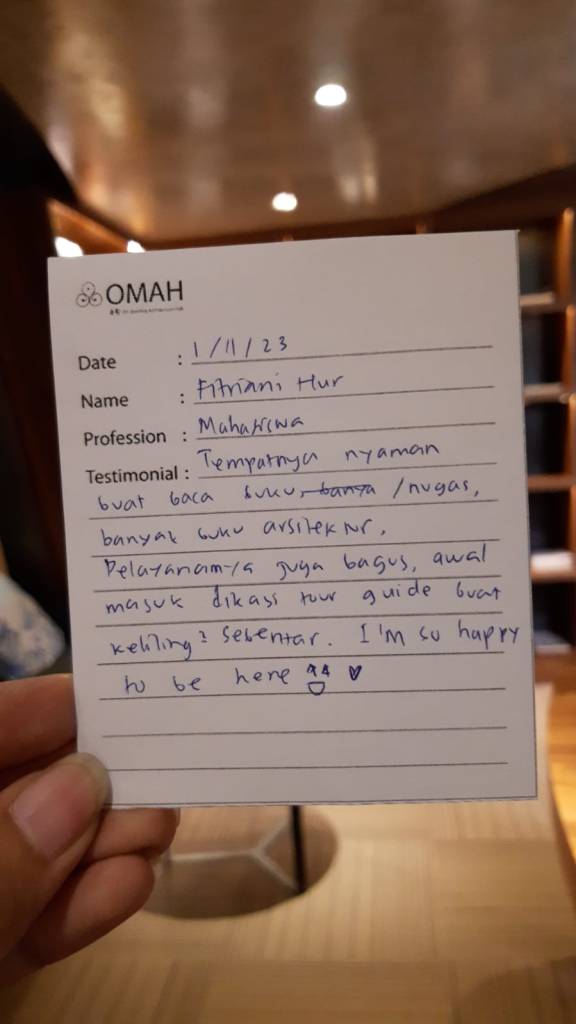 OMAH
Date : 1/11/23
Name : Fitriani Nur
Profession : Mahasiswa
Testimonial : Tempatnya nyaman
buat baca buku, banya /nugas,
banyak buku arsitektur.
Pelayanannya juga bagus, awal
masuk dikasi tour guide buat
keliling² sebentar. I'm so happy
to be here